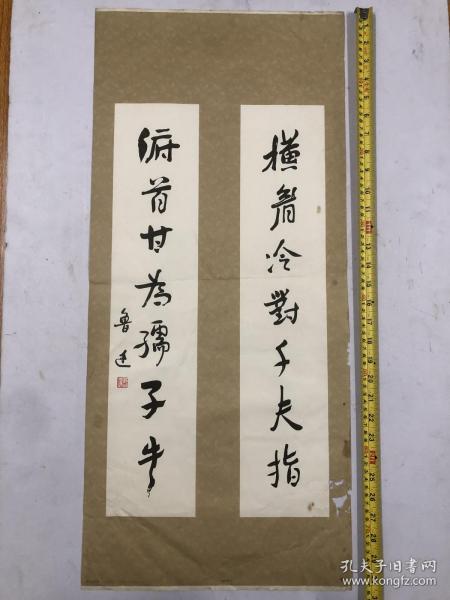 橫眉冷對千夫指
俯首甘為孺子牛
魯迅
孔夫子旧书网
www.kongfz.com